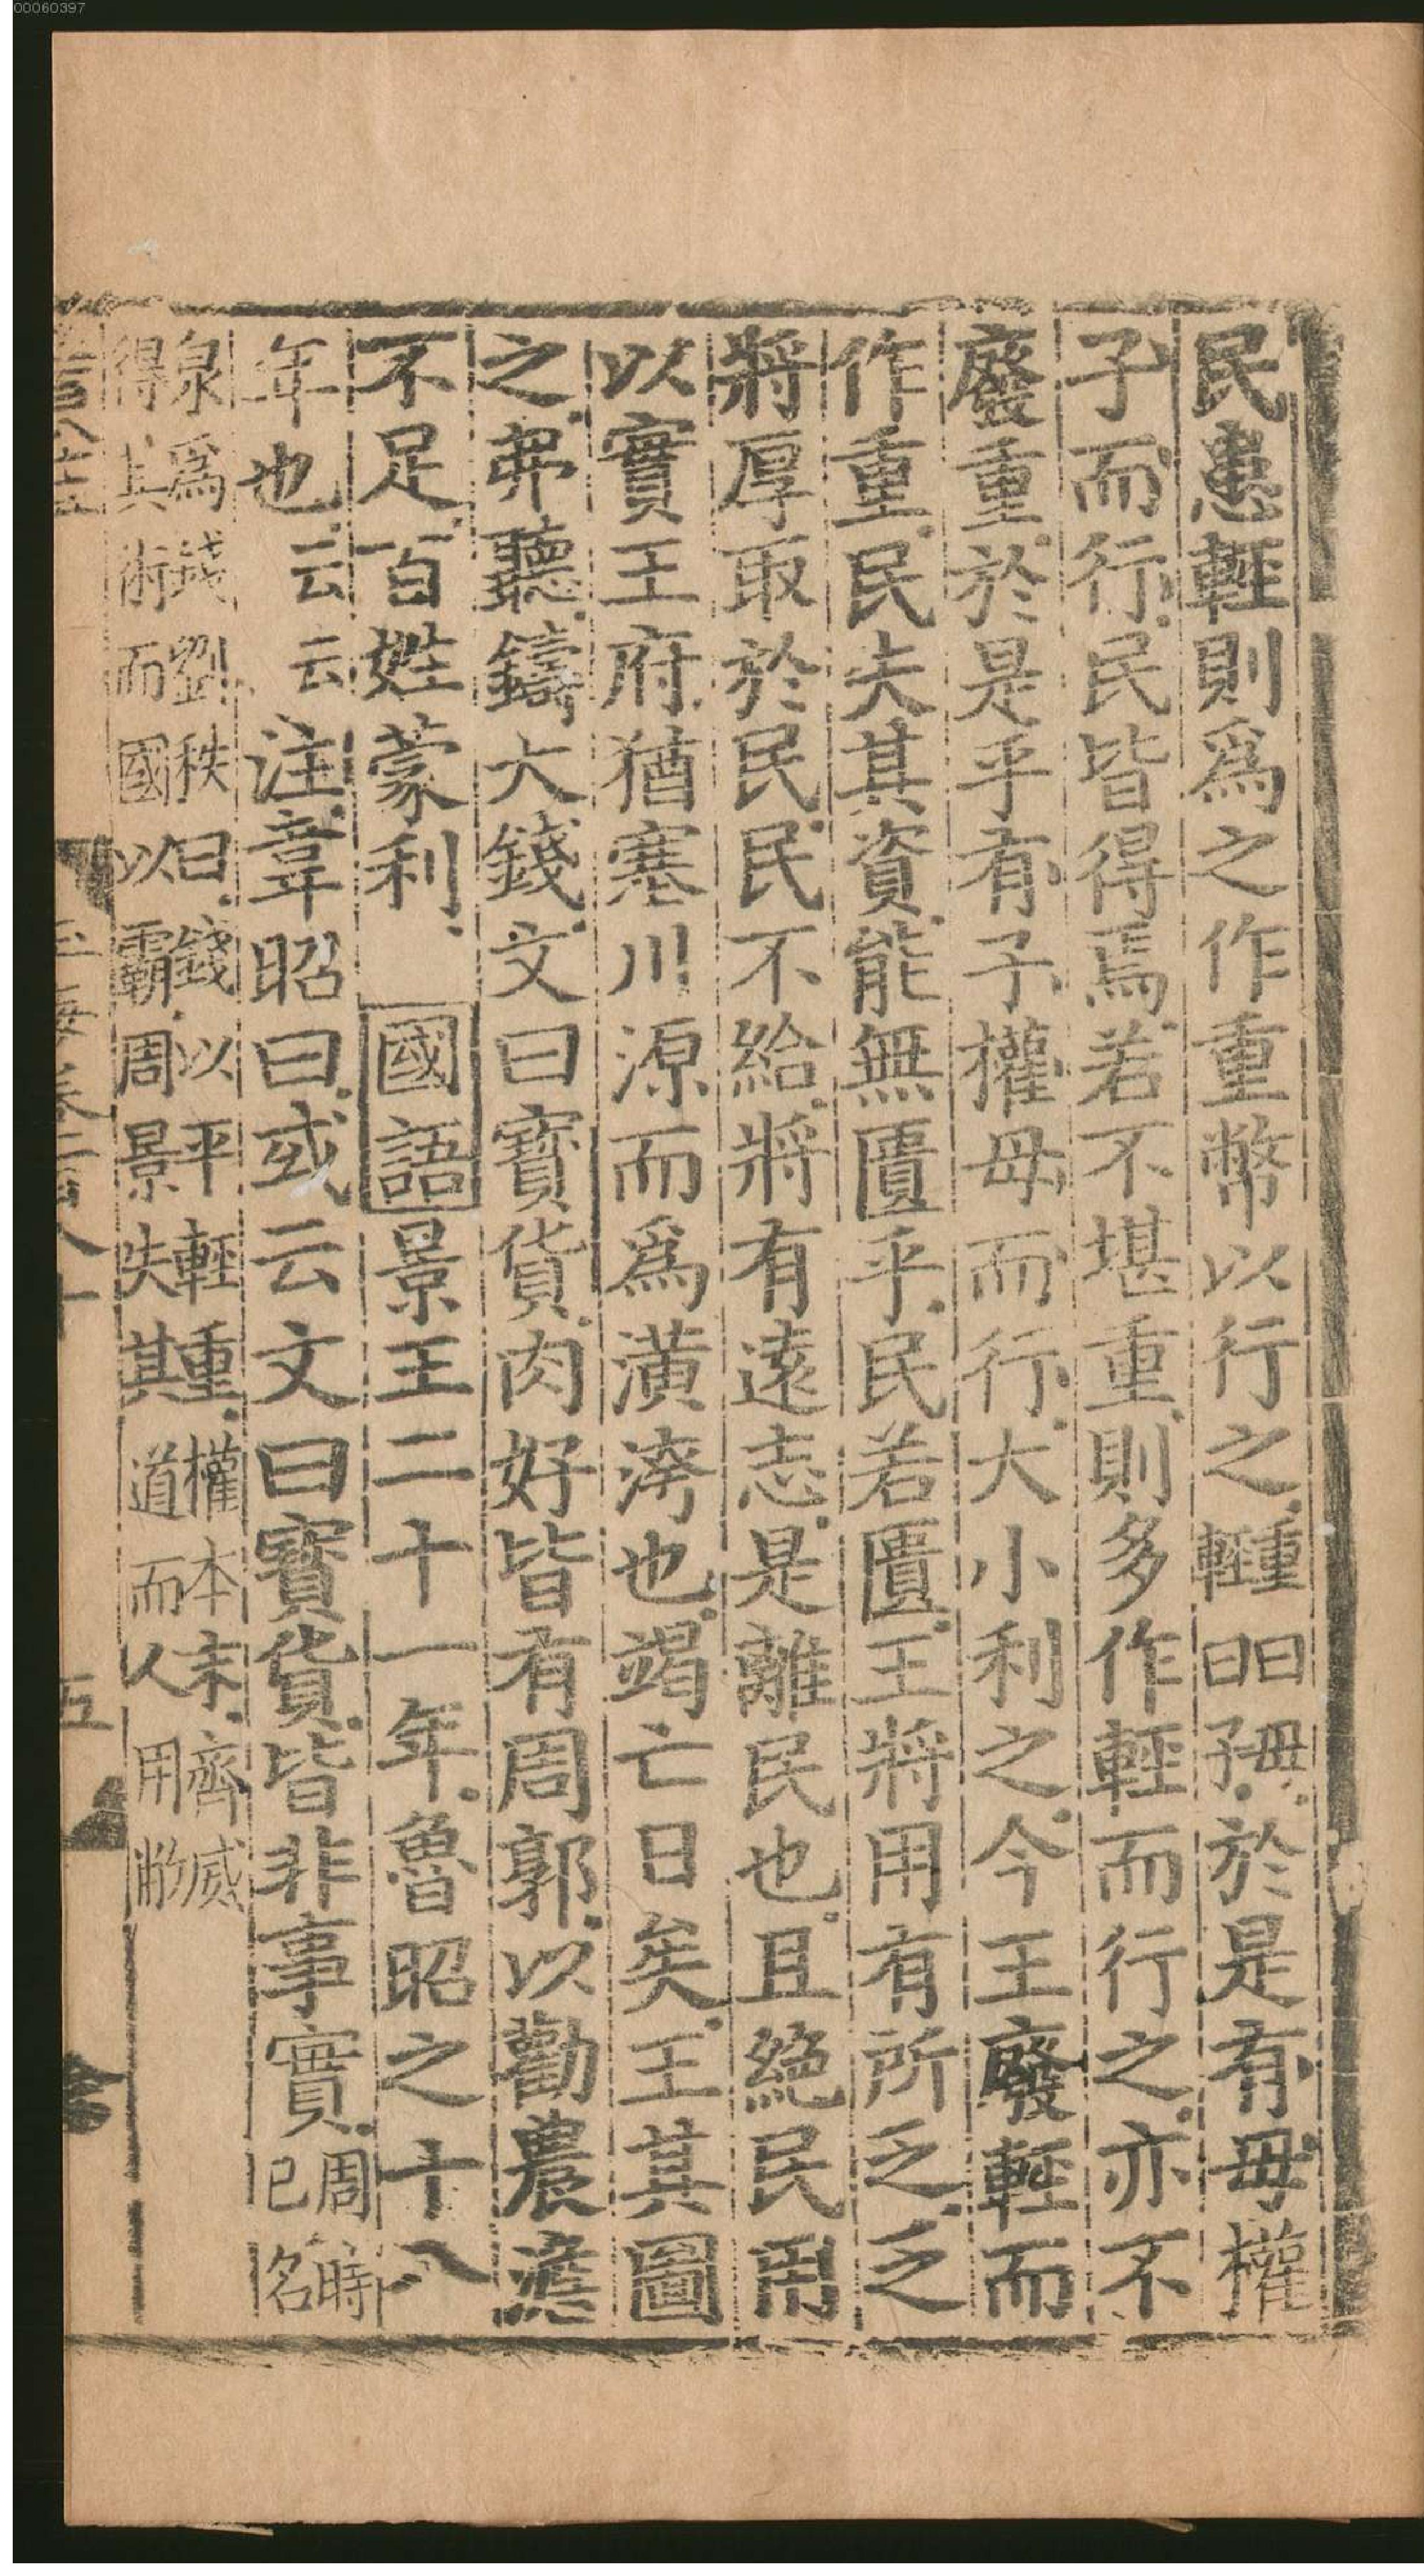 00060397
民患輕則爲之作重幣以行之重曰母輕曰子於是有母權
子而行民皆得焉若不堪重則多作輕而行之亦不
廢重於是乎有子權母而行大小利之今王廢輕而
作重民失其資能無匱乎民若匱王將用有所乏乏
將厚取於民民不給將有遠志是離民也且絕民用
以實王府猶塞川源而爲潢洿也竭亡日矣王其圖
之弗聽鑄大錢文曰寶貨肉好皆有周郭以勸農澹
不足百姓蒙利 國語景王二十一年魯昭之十八
年也云云注韋昭曰或云文曰寶貨皆非事實周時已名
泉爲錢劉秩曰錢以平輕重權本末齊威得其術而國以霸周景失其道而人用弊
玉海卷一百八十
五